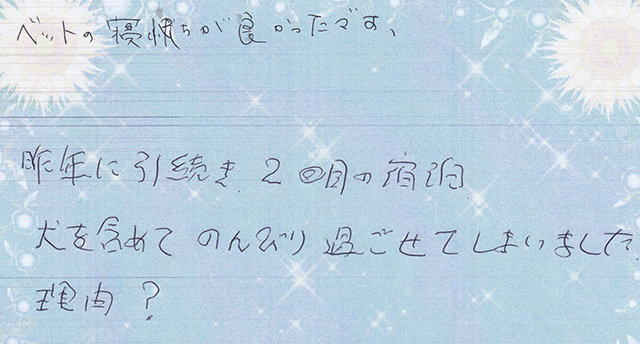 ベットの寝心地が良かったです、
昨年に引続き 2回目の宿泊
犬を含めて のんびり過ごせてしまいました
理由?